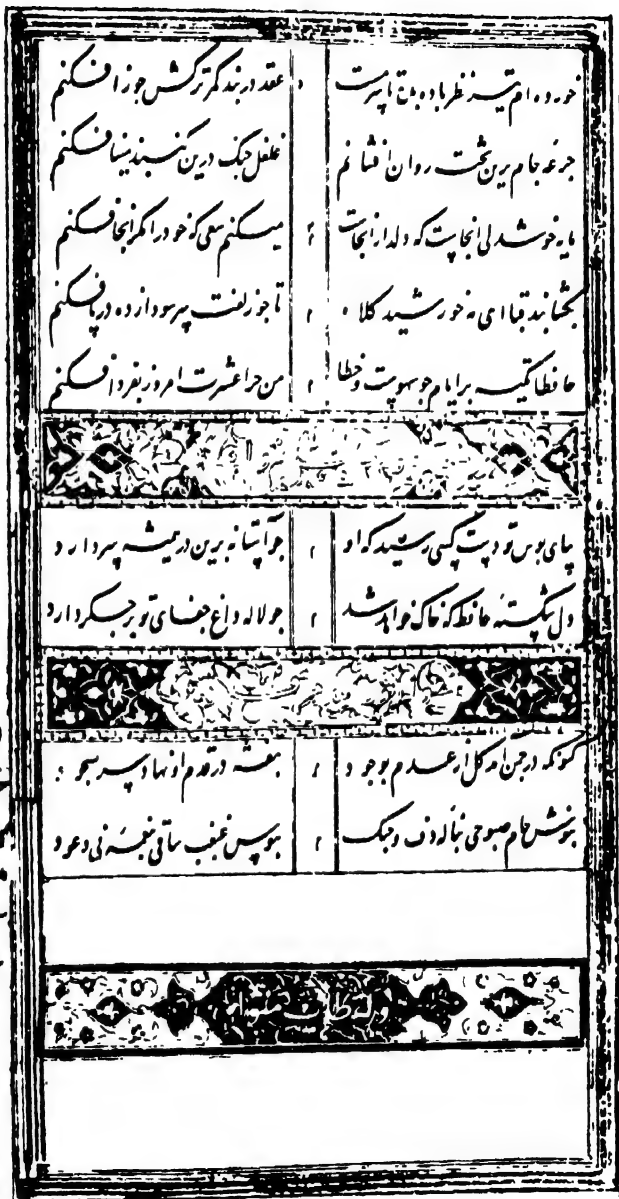 خورده‌ام تیر نظر باده بده تا سرمست عقد در بند کمر ترکش جوزا فکنم
جرعه جام برین تخت روان افشانم غلغل چنگ درین گنبد مینا فکنم
مایه خوشدلی انجاست که دلدار انجاست میکنم سعی که خود را مگر انجا فکنم
بگشا بند قبا ای مه خورشید کلاه تا چو زلفت سر سودازده در پا فکنم
حافظا تکیه بر ایام چو سهوست و خطا من چرا عشرت امروز بفردا فکنم
بپای بوس تو دست کسی رسید که او چو آستانه برین در همیشه سر دارد
دل شکسته حافظ که خاک خواهد شد چو لاله داغ هوای تو بر جگر دارد
کنونکه در چمن آمد گل از عدم بوجود بنفشه در قدم او نهاد سر بسجود
بنوش جام صبوحی بناله دف و چنگ ببوس غبغب ساقی بنغمه نی و عود